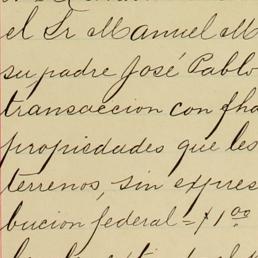 el Sr Manuel M
su padre José Pablo
transaccion con fha
propiedades que les
terrenos, sin expres
bucion federal = $1.00